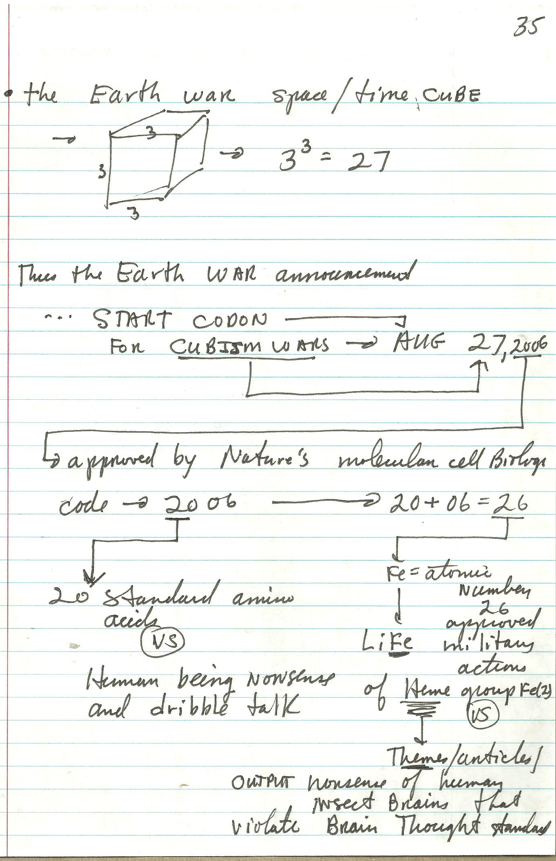 35
• the Earth war space/time CUBE
3
3
3
3³ = 27
Thus the Earth WAR announcement
... START CODON
For CUBISM WARS → AUG 27, 2006
approved by Nature's molecular cell Biology
code → 2006 → 20 + 06 = 26
Fe = atomic
Number
26
20 standard amino
acids
VS
approved
LiFe military
actions
Human being NONSENSE
and dribble talk
of Heme group Fe(2)
VS
Themes/articles/
OUTPUT nonsense of human
insect Brains that
violate Brain Thought standard